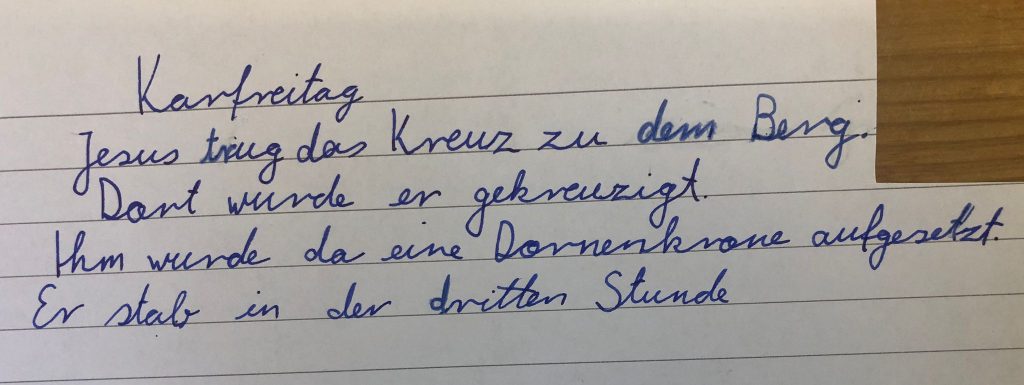 Karfreitag
Jesus trug das Kreuz zu dem Berg.
Dort wurde er gekreuzigt.
Ihm wurde da eine Dornenkrone aufgesetzt.
Er stab in der dritten Stunde